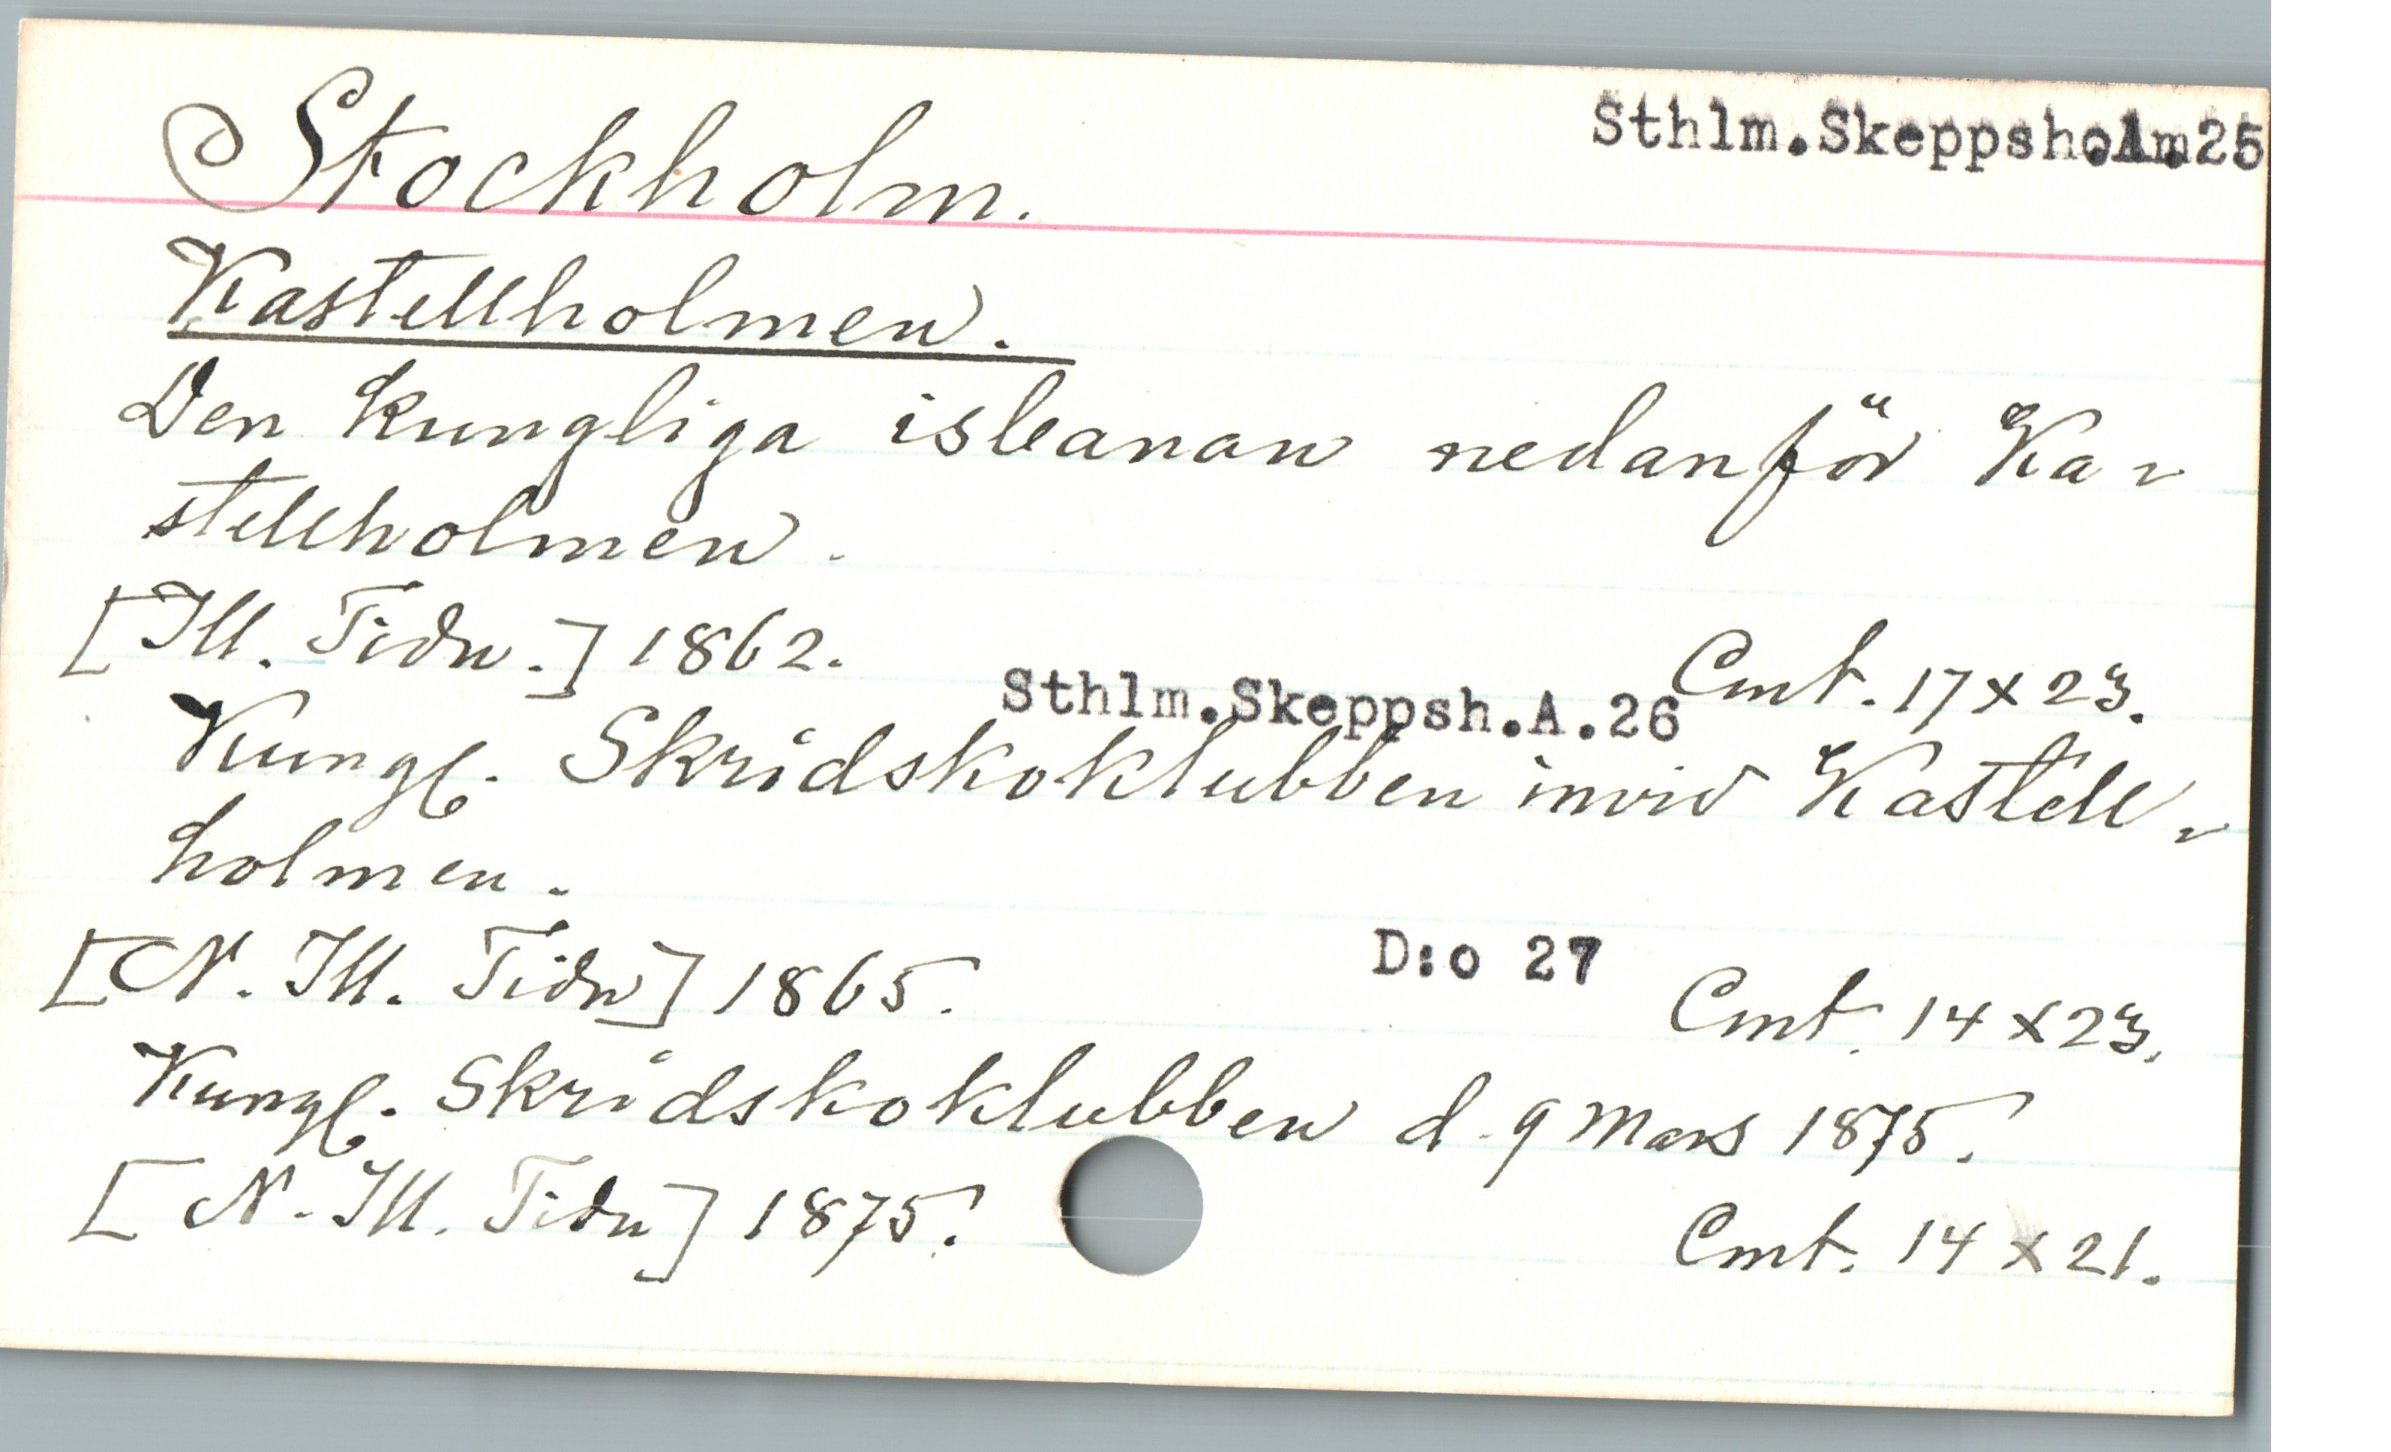 Stockholm.
Sthlm.Skeppsh.A.25
Kastellholmen.
Den kungliga isbanan nedanför Ka-
stellholmen.
[Ill. Tidn.] 1862.
Cmt. 17 x 23.
Sthlm.Skeppsh.A.26
Kungl. Skridskoklubben invid Kastell-
holmen.
[N. Ill. Tidn] 1865.
D:o 27
Cmt. 14 x 23.
Kungl. Skridskoklubben d. 9 Mars 1875.
[N. Ill. Tidn] 1875.
Cmt. 14 x 21.